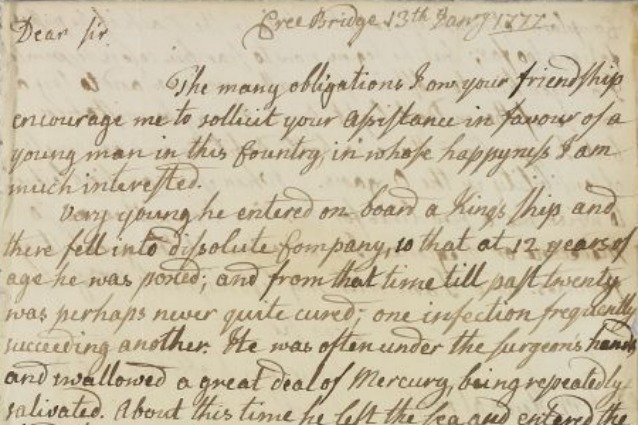 Cree Bridge 13th Janry 1777.
Dear Sir
The many obligations I ow your friendship
encourage me to sollicit your assistance in favour of a
young man in this Country, in whose happyness I am
much interested.
Very young he entered on board a Kings ship and
there fell into dissolute Company, so that at 12 years of
age he was poxed; and from that time till past twenty
was perhaps never quite cured; one infection frequently
succeeding another. He was often under the surgeons hands
and swallowed a great deal of Mercury, being repeatedly
salivated. About this time he left the sea and entered the